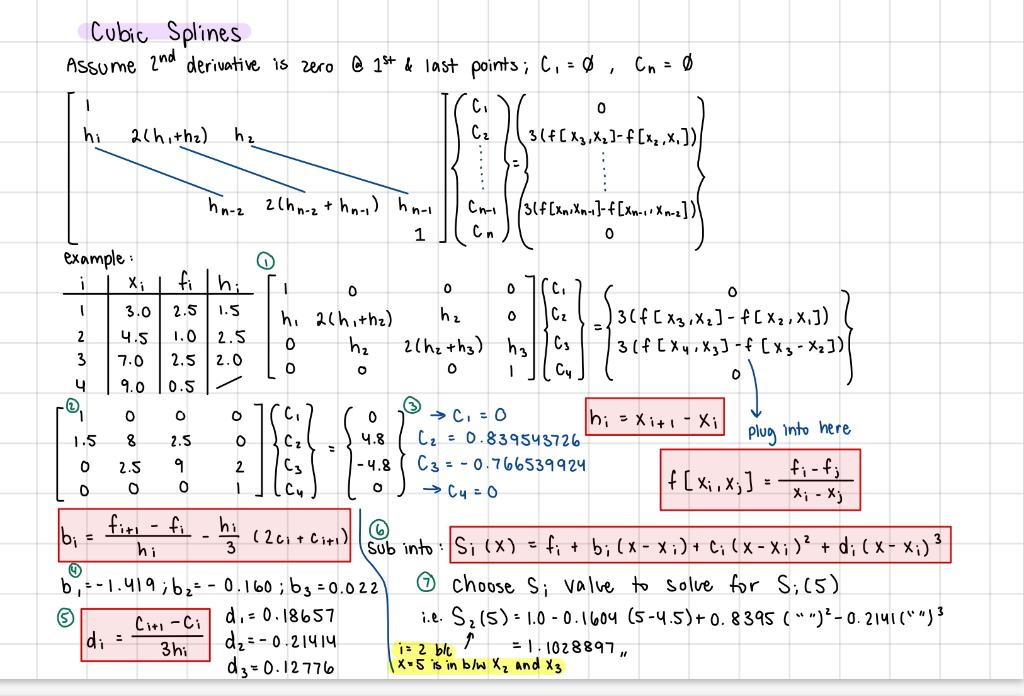 Cubic Splines
Assume 2nd derivative is zero @ 1st & last points; C₁ = Ø , Cn = Ø
1 C₁ 0
h₁ 2(h₁+h₂) h₂ C₂ 3(f[x₃,x₂]-f[x₂,x₁])
=
hn-2 2(hn-2 + hn-1) hn-1 Cn-1 3(f[xn,xn-1]-f[xn-1,xn-2])
1 Cn 0
example: ①
i xᵢ fᵢ hᵢ
1 3.0 2.5 1.5
2 4.5 1.0 2.5
3 7.0 2.5 2.0
4 9.0 0.5
1 0 0 0 C₁ 0
h₁ 2(h₁+h₂) h₂ 0 C₂ = 3(f[x₃,x₂]-f[x₂,x₁])
0 h₂ 2(h₂+h₃) h₃ C₃ 3(f[x₄,x₃]-f[x₃-x₂])
0 0 0 1 C₄ 0
②
1 0 0 0 C₁ 0
1.5 8 2.5 0 C₂ = 4.8
0 2.5 9 2 C₃ -4.8
0 0 0 1 C₄ 0
③ → C₁ = 0
C₂ = 0.839543726
C₃ = -0.766539924
→ C₄ = 0
hᵢ = xᵢ₊₁ - xᵢ
plug into here
f[xᵢ,xⱼ] = fᵢ-fⱼ / xᵢ-xⱼ
bᵢ = fᵢ₊₁ - fᵢ / hᵢ - hᵢ / 3 (2cᵢ + cᵢ₊₁)
④
b₁=-1.419; b₂=-0.160; b₃=0.022
⑤ dᵢ = Cᵢ₊₁ - Cᵢ / 3hᵢ
d₁ = 0.18657
d₂=-0.21414
d₃=0.12776
⑥
sub into: Sᵢ(x) = fᵢ + bᵢ(x-xᵢ)+cᵢ(x-xᵢ)² + dᵢ(x-xᵢ)³
⑦ Choose Sᵢ value to solve for Sᵢ(5)
i.e. S₂(5)=1.0-0.1604 (5-4.5)+0.8395 (" ")²-0.2141(" ")³
= 1.1028897,,
i=2 b/c
x=5 is in b/w x₂ and x₃